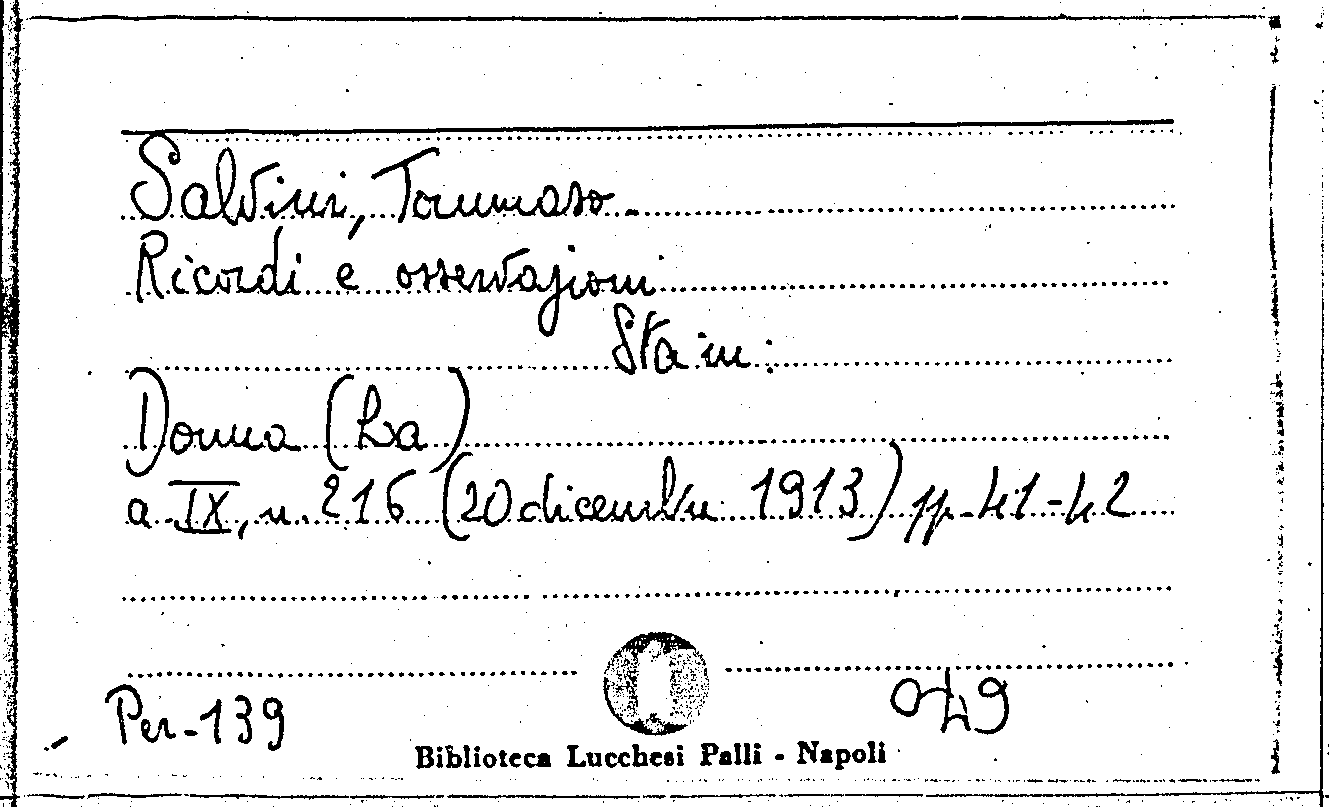 Salvini, Tommaso.
Ricordi e osservazioni
Sta in:
Donna (La)
a. IX, n. 216 (20 dicembre 1913) pp. 41-42
Per. 139
049
Biblioteca Lucchesi Palli - Napoli